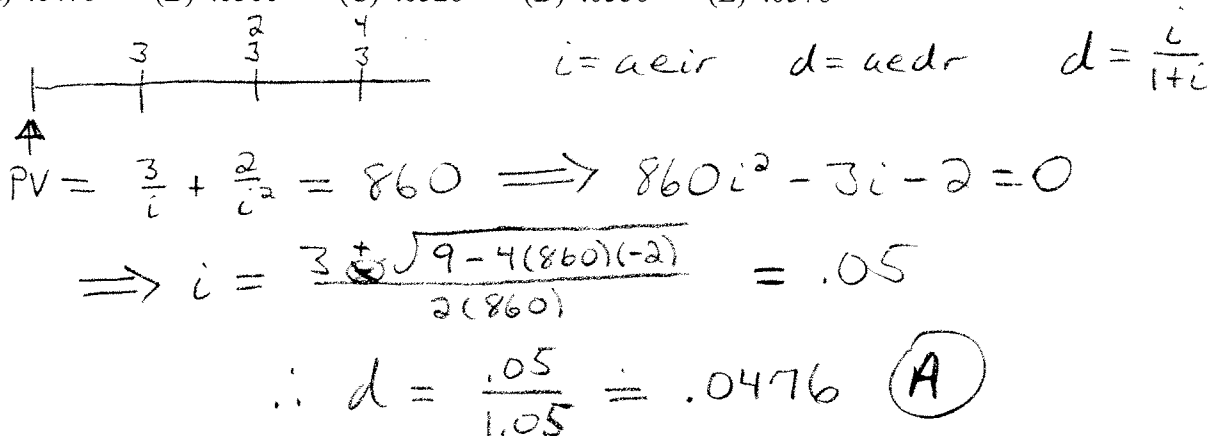 2 4
3 3 3 ..
i = aeir d = aedr d = i/(1+i)
PV = 3/i + 2/i² = 860 ⟹ 860i² - 3i - 2 = 0
⟹ i = (3 ± √(9 - 4(860)(-2)))/(2(860)) = .05
∴ d = .05/1.05 ≐ .0476 (A)